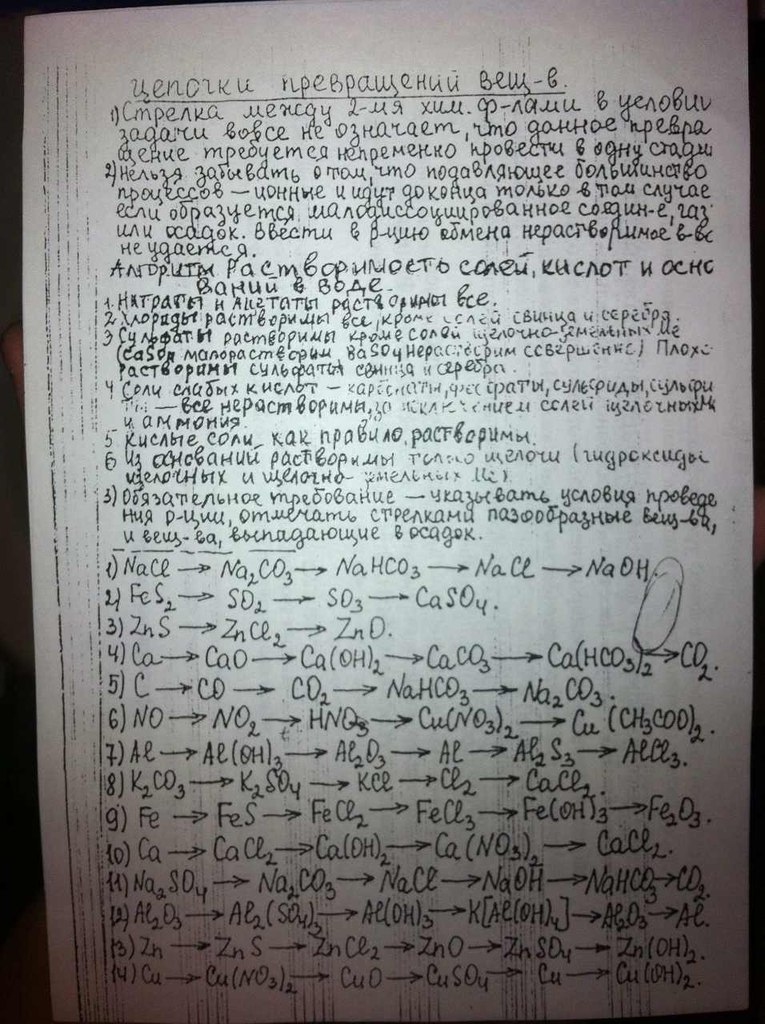 цепочки превращений вещ-в.
1) Стрелка между 2-мя хим. ф-лами в условии
задачи вовсе не означает, что данное превра
щение требуется непременно провести в одну стади
2) Нельзя забывать о том, что подавляющее большинство
процессов — ионные и идут до конца только в том случае
если образуется малодиссоциированное соедин-е, газ
или осадок. Ввести в р-цию обмена нерастворимое в-во
не удается.
Алгоритм Растворимость солей, кислот и осно
ваний в воде.
1. Нитраты и ацетаты растворимы все.
2. Хлориды растворимы все, кроме солей свинца и серебра.
3 Сульфаты растворимы кроме солей щелочно-земельных Ме
(CaSO4 малорастворим, BaSO4 нерастворим совершенно) Плохо
растворимы сульфаты свинца и серебра.
4 Соли слабых кислот — карбонаты, фосфаты, сульфиды, сульфи
ты — все нерастворимы, за исключением солей щелочных Ме
и аммония.
5 Кислые соли, как правило, растворимы.
6 Из оснований растворимы только щелочи (гидроксиды
щелочных и щелочно-земельных Ме).
3) Обязательное требование — указывать условия проведе
ния р-ции, отмечать стрелками газообразные вещ-ва,
и вещ-ва, выпадающие в осадок.
1) NaCl → Na2CO3 → NaHCO3 → NaCl → NaOH
2) FeS2 → SO2 → SO3 → CaSO4.
3) ZnS → ZnCl2 → ZnO.
4) Ca → CaO → Ca(OH)2 → CaCO3 → Ca(HCO3)2 → CO2.
5) C → CO → CO2 → NaHCO3 → Na2CO3.
6) NO → NO2 → HNO3 → Cu(NO3)2 → Cu(CH3COO)2.
7) Al → Al(OH)3 → Al2O3 → Al → Al2S3 → AlCl3.
8) K2CO3 → K2SO4 → KCl → Cl2 → CaCl2.
9) Fe → FeS → FeCl2 → FeCl3 → Fe(OH)3 → Fe2O3.
10) Ca → CaCl2 → Ca(OH)2 → Ca(NO3)2 → CaCl2.
11) Na2SO4 → Na2CO3 → NaCl → NaOH → NaHCO3 → CO2.
12) Al2O3 → Al2(SO4)3 → Al(OH)3 → K[Al(OH)4] → Al2O3 → Al.
13) Zn → ZnS → ZnCl2 → ZnO → ZnSO4 → Zn(OH)2.
14) Cu → Cu(NO3)2 → CuO → CuSO4 → Cu → Cu(OH)2.